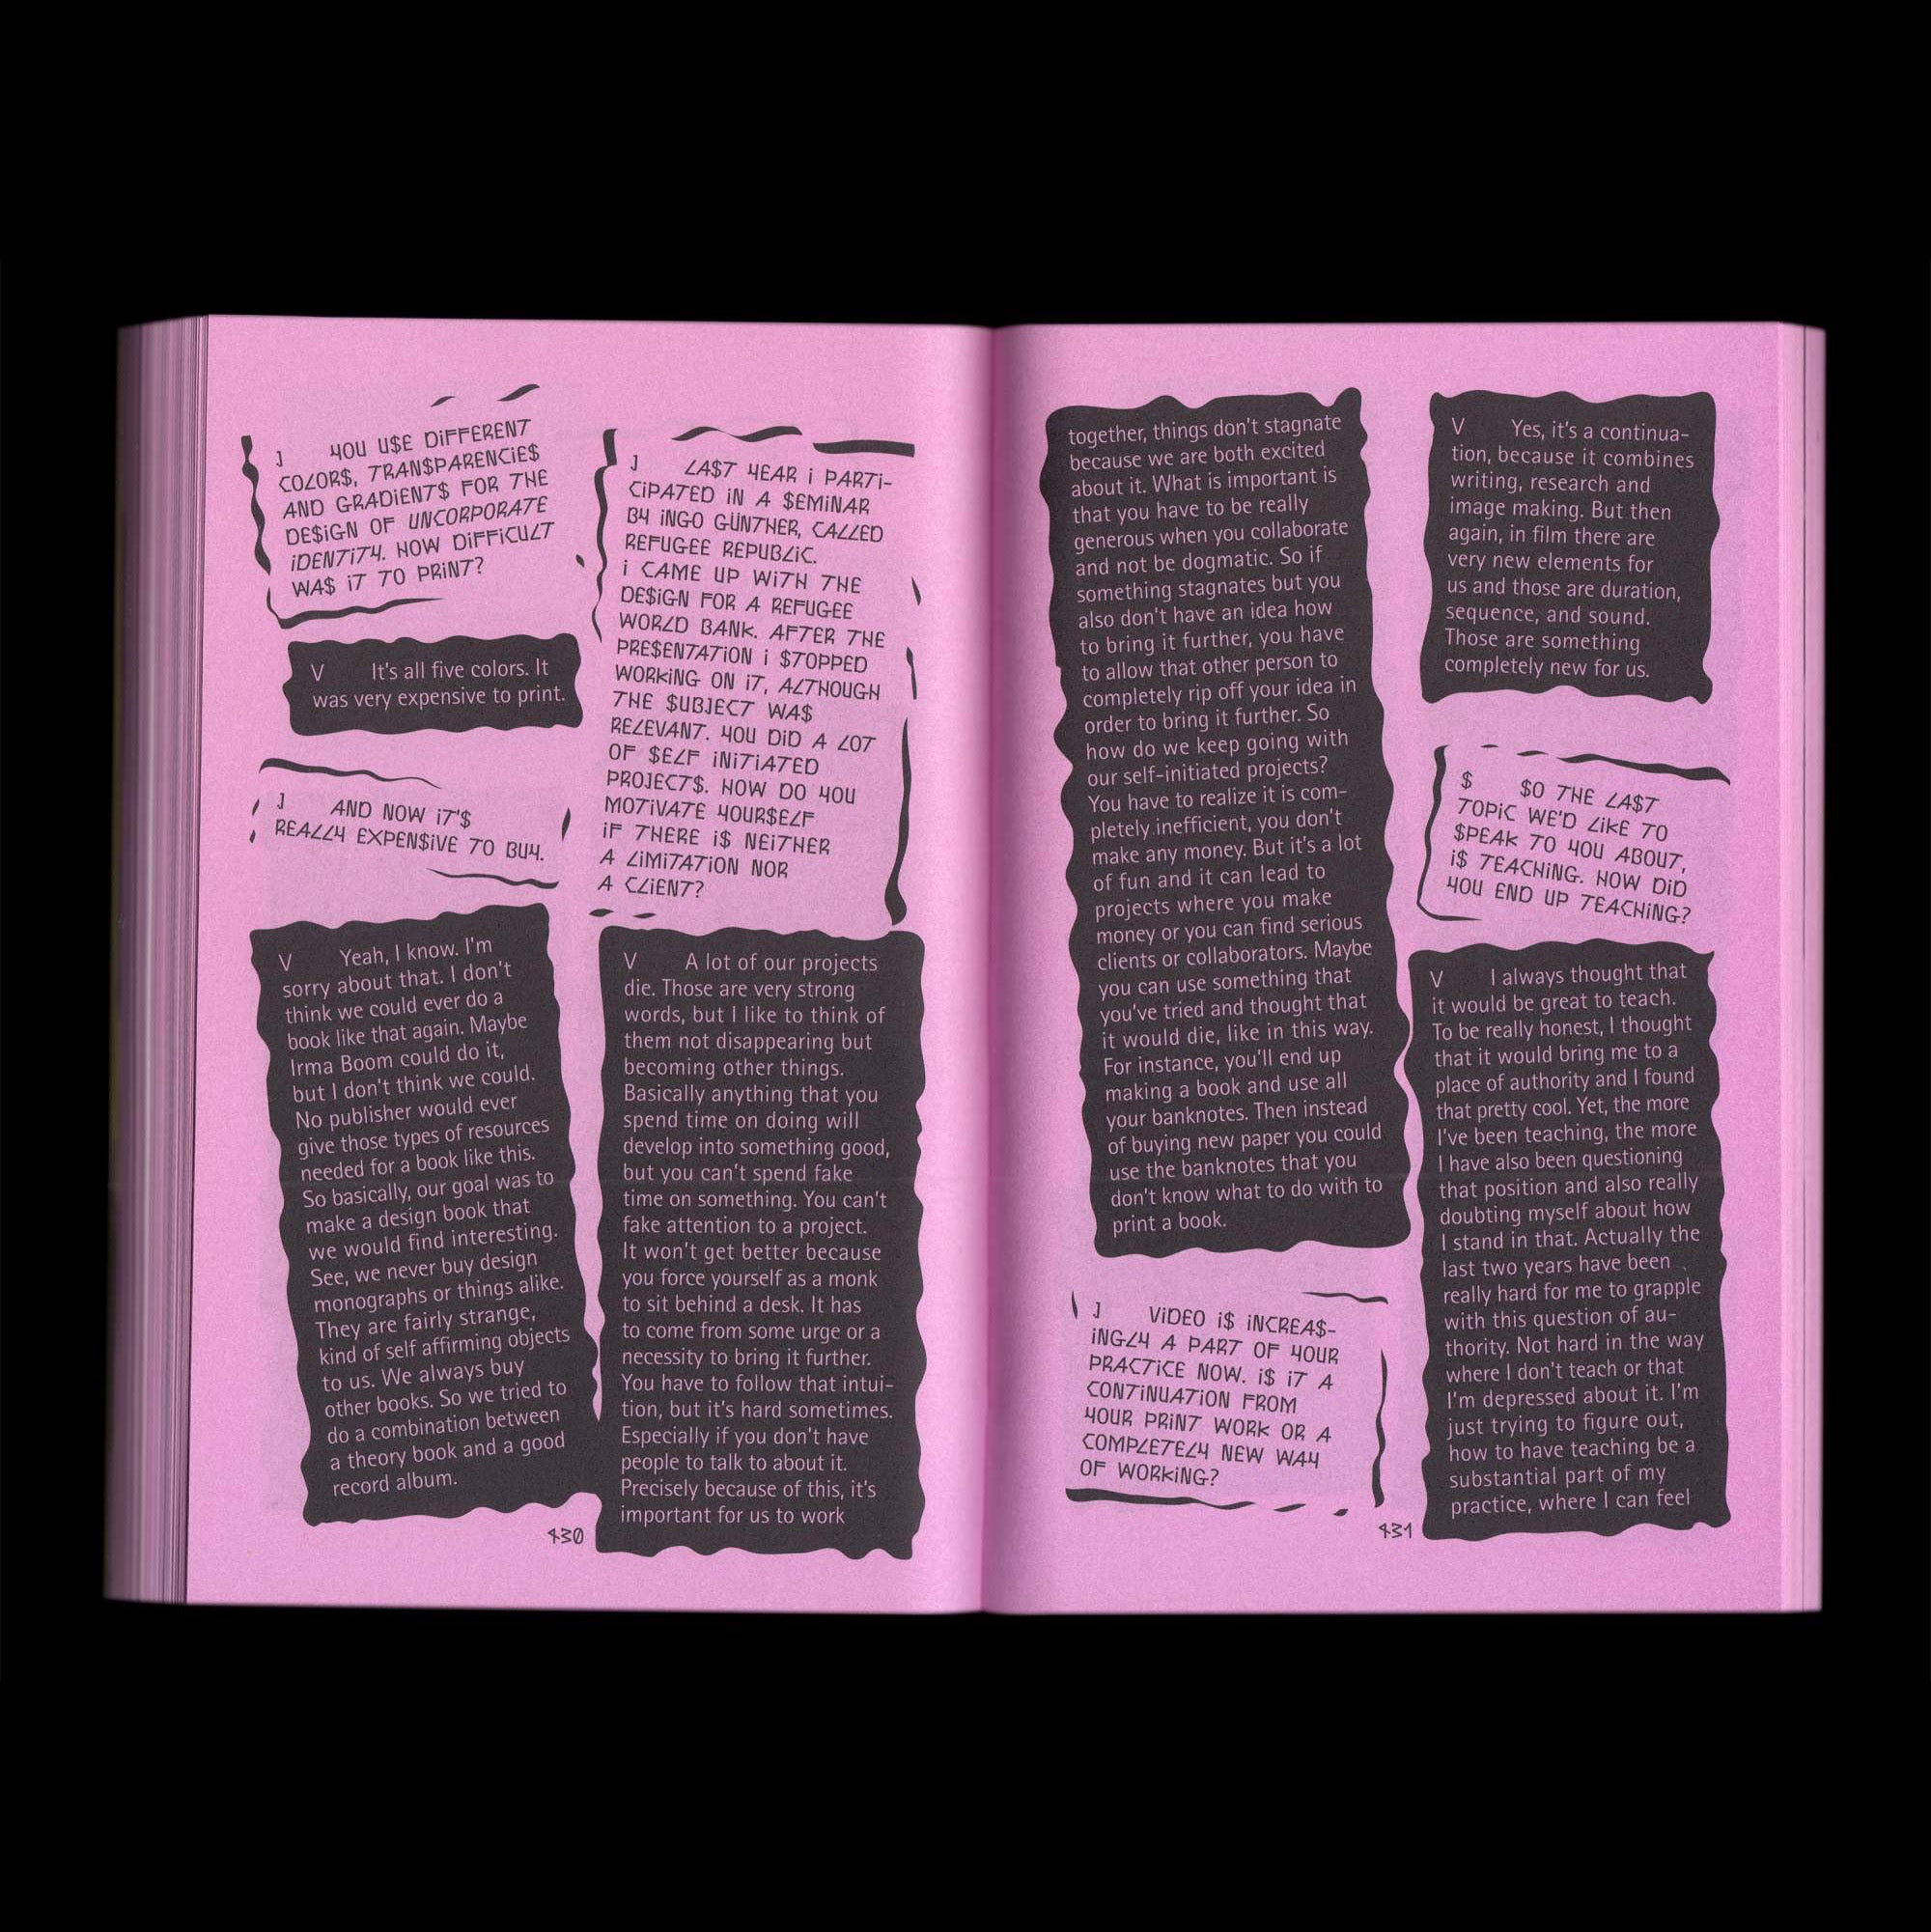 J YOU U$E DiFFERENT
COLOR$, TRAN$PARENCiE$
AND GRADiENT$ FOR THE
DE$iGN OF UNCORPORATE
iDENTiTY. HOW DiFFiCULT
WA$ iT TO PRiNT?
V It's all five colors. It
was very expensive to print.
J AND NOW iT'$
REALLY EXPEN$iVE TO BUY.
V Yeah, I know. I'm
sorry about that. I don't
think we could ever do a
book like that again. Maybe
Irma Boom could do it,
but I don't think we could.
No publisher would ever
give those types of resources
needed for a book like this.
So basically, our goal was to
make a design book that
we would find interesting.
See, we never buy design
monographs or things alike.
They are fairly strange,
kind of self affirming objects
to us. We always buy
other books. So we tried to
do a combination between
a theory book and a good
record album.
J LA$T YEAR i PARTi-
CiPATED iN A $EMiNAR
BY iNGO GÜNTHER, CALLED
REFUGEE REPUBLiC.
i CAME UP WiTH THE
DE$iGN FOR A REFUGEE
WORLD BANK. AFTER THE
PRE$ENTATiON i $TOPPED
WORKiNG ON iT, ALTHOUGH
THE $UBJECT WA$
RELEVANT. YOU DiD A LOT
OF $ELF iNiTiATED
PROJECT$. HOW DO YOU
MOTiVATE YOUR$ELF
iF THERE i$ NEiTHER
A LiMiTATiON NOR
A CLiENT?
V A lot of our projects
die. Those are very strong
words, but I like to think of
them not disappearing but
becoming other things.
Basically anything that you
spend time on doing will
develop into something good,
but you can't spend fake
time on something. You can't
fake attention to a project.
It won't get better because
you force yourself as a monk
to sit behind a desk. It has
to come from some urge or a
necessity to bring it further.
You have to follow that intui-
tion, but it's hard sometimes.
Especially if you don't have
people to talk to about it.
Precisely because of this, it's
important for us to work
430
together, things don't stagnate
because we are both excited
about it. What is important is
that you have to be really
generous when you collaborate
and not be dogmatic. So if
something stagnates but you
also don't have an idea how
to bring it further, you have
to allow that other person to
completely rip off your idea in
order to bring it further. So
how do we keep going with
our self-initiated projects?
You have to realize it is com-
pletely inefficient, you don't
make any money. But it's a lot
of fun and it can lead to
projects where you make
money or you can find serious
clients or collaborators. Maybe
you can use something that
you've tried and thought that
it would die, like in this way.
For instance, you'll end up
making a book and use all
your banknotes. Then instead
of buying new paper you could
use the banknotes that you
don't know what to do with to
print a book.
J ViDEO i$ iNCREA$-
iNGLY A PART OF YOUR
PRACTiCE NOW. i$ iT A
CONTiNUATiON FROM
YOUR PRiNT WORK OR A
COMPLETELY NEW WAY
OF WORKiNG?
V Yes, it's a continua-
tion, because it combines
writing, research and
image making. But then
again, in film there are
very new elements for
us and those are duration,
sequence, and sound.
Those are something
completely new for us.
$ $O THE LA$T
TOPiC WE'D LiKE TO
$PEAK TO YOU ABOUT,
i$ TEACHiNG. HOW DiD
YOU END UP TEACHiNG?
V I always thought that
it would be great to teach.
To be really honest, I thought
that it would bring me to a
place of authority and I found
that pretty cool. Yet, the more
I've been teaching, the more
I have also been questioning
that position and also really
doubting myself about how
I stand in that. Actually the
last two years have been
really hard for me to grapple
with this question of au-
thority. Not hard in the way
where I don't teach or that
I'm depressed about it. I'm
just trying to figure out,
how to have teaching be a
substantial part of my
practice, where I can feel
431